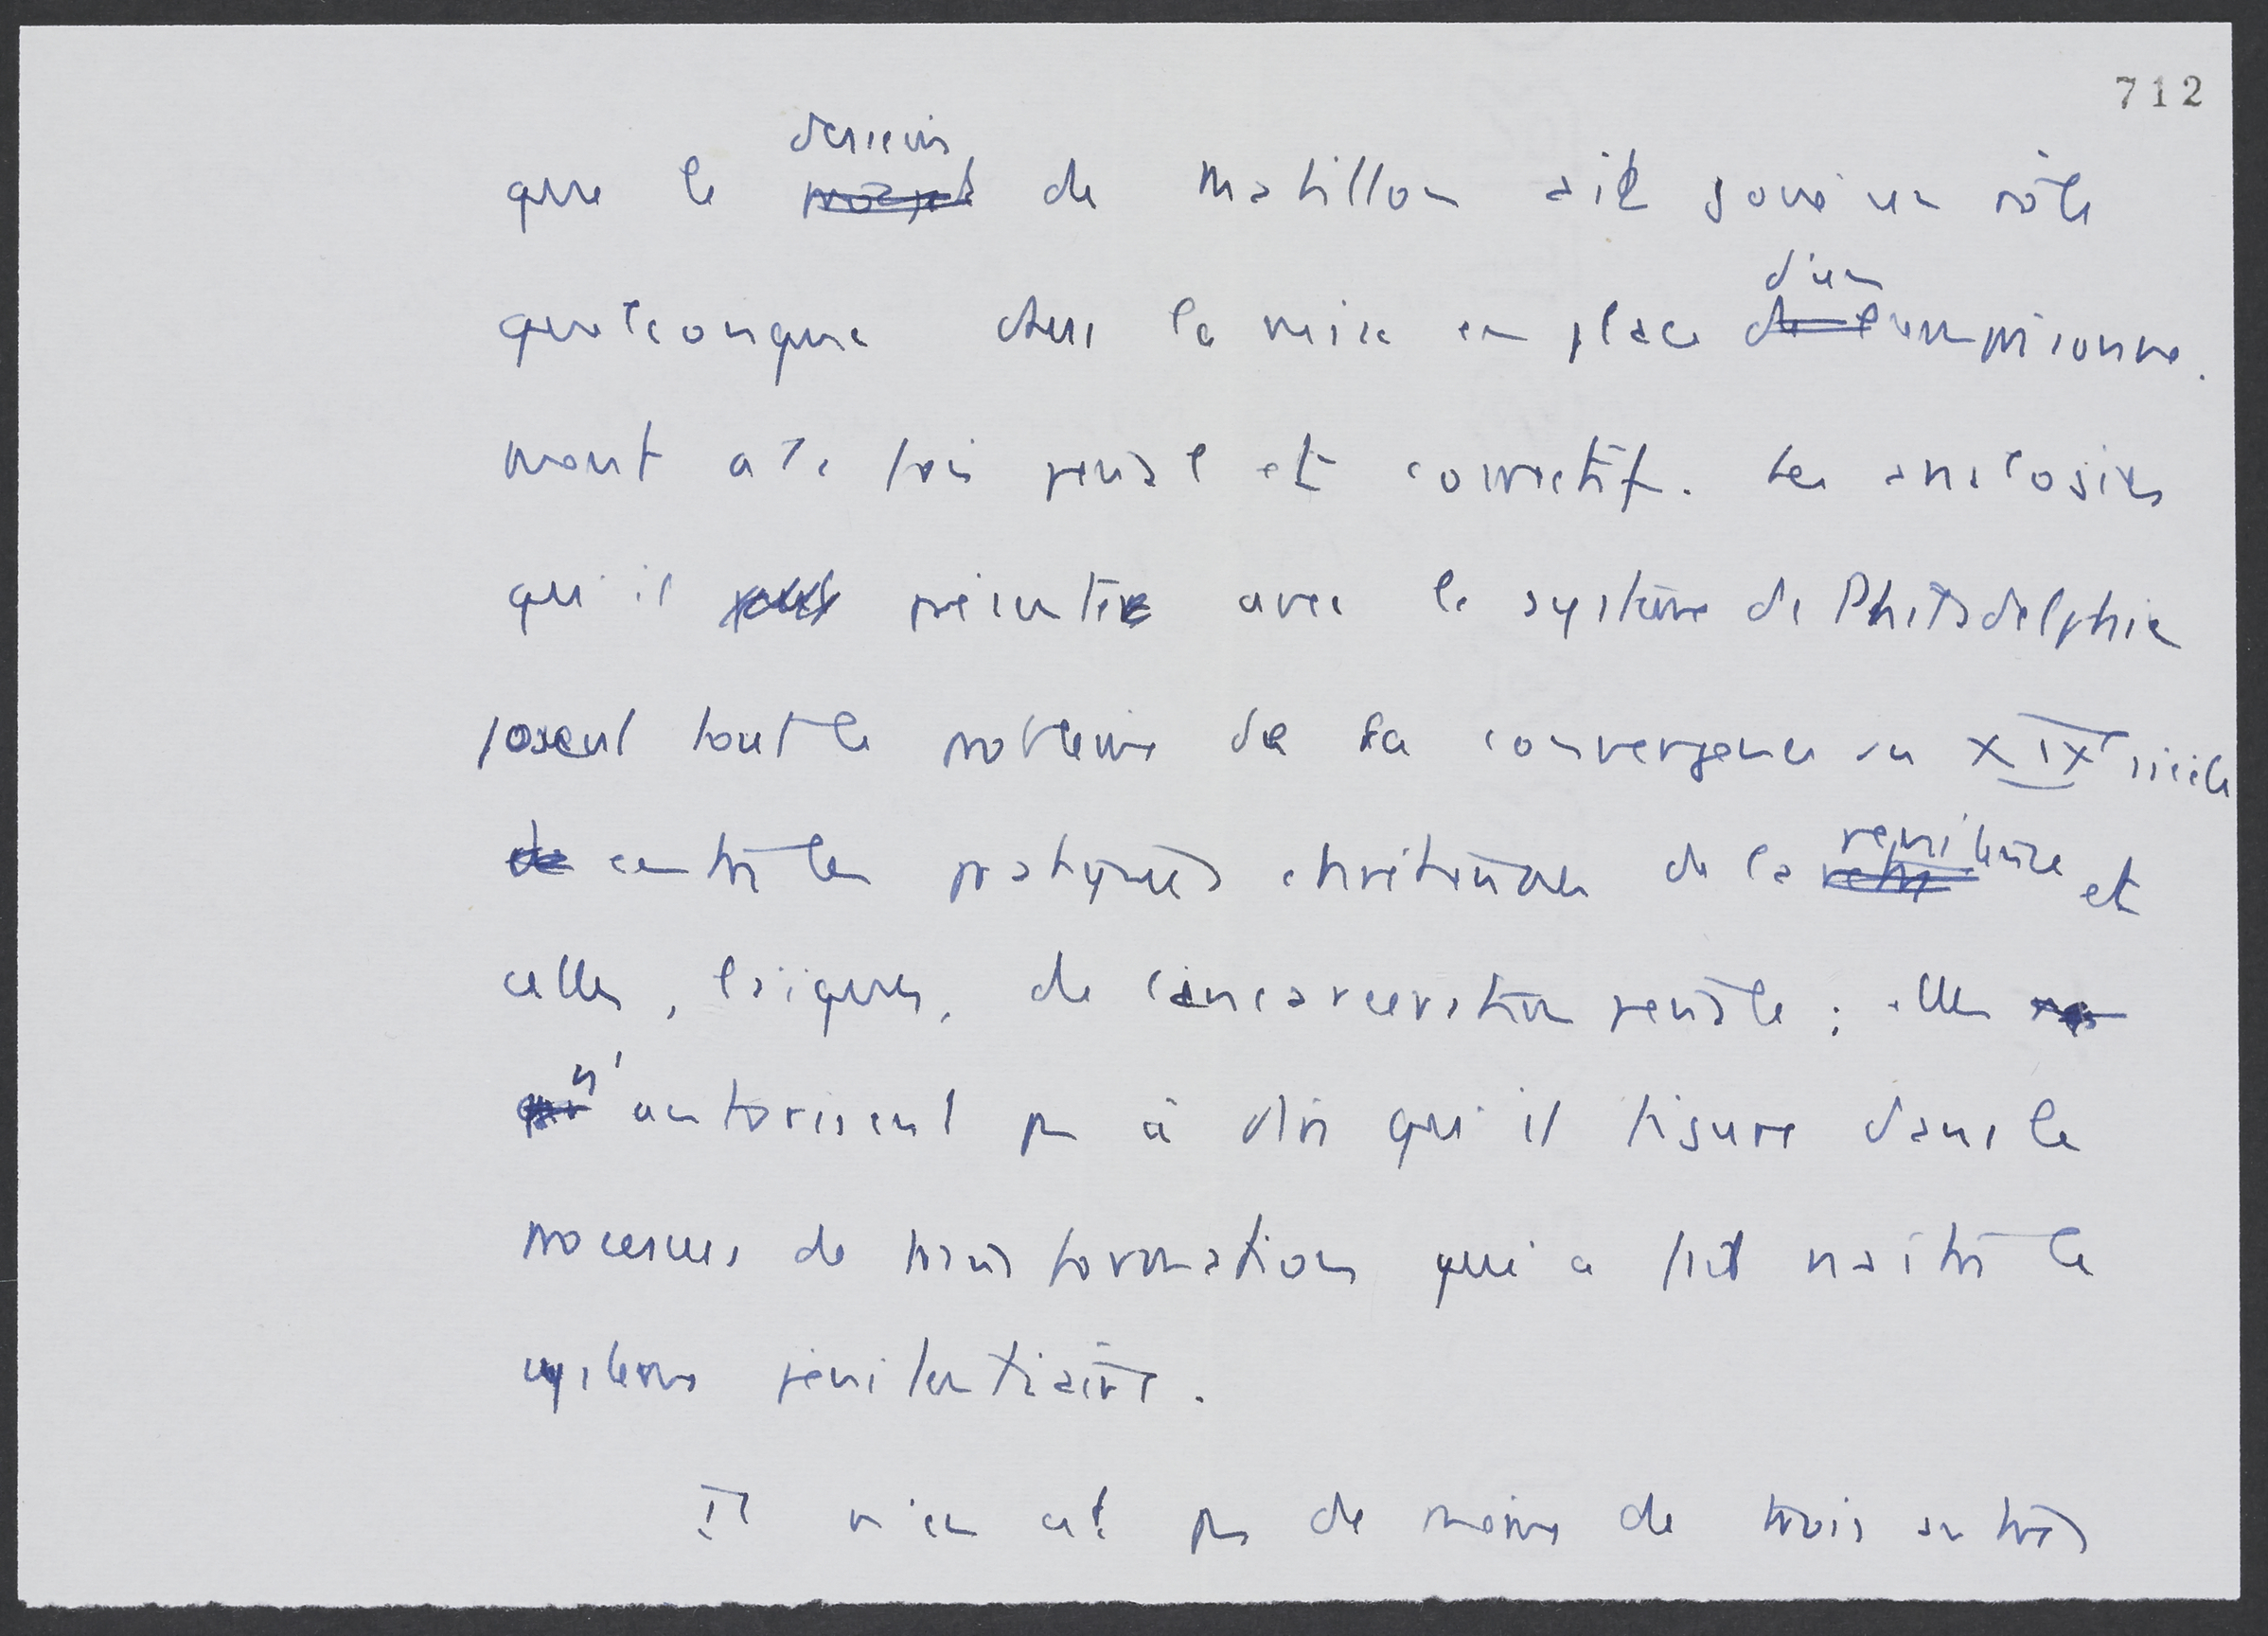 712
dessein
que le projet de Mabillon ait joué un rôle
d'un
quelconque dans la mise en place de l'emprisonne-
ment à la fois pénal et correctif. Les analogies
qu'il présente avec le système de Philadelphie
posent tout le problème de la convergence au XIXe siècle
de entre les pratiques chrétiennes de la
pénitence et
celles, laïques, de l'incarcération pénale ; elles
n'autorisent pas à dire qu'il figure dans le
processus de transformation qui a fait naître le
système pénitentiaire.
Il n'en est pas de même de trois autres